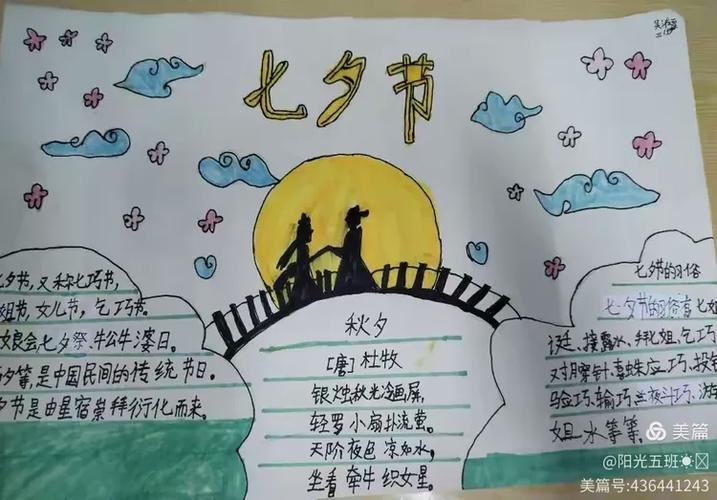 七夕节
七夕节,又称七巧节,
七姐节,女儿节,乞巧节。
七娘会七夕祭、牛公牛婆日。
巧夕等,是中国民间的传统节日。
七夕节是由星宿崇拜衍化而来。
秋夕
[唐]杜牧
银烛秋光冷画屏,
轻罗小扇扑流萤。
天阶夜色凉如水,
坐看牵牛织女星。
七夕节的习俗
七夕节的习俗有七姐
诞、接露水、拜七姐、乞巧
对月穿针、喜蛛应巧、投针
验巧、输巧、兰夜斗巧、
水等等。
美篇
@阳光五班
美篇号:436441243